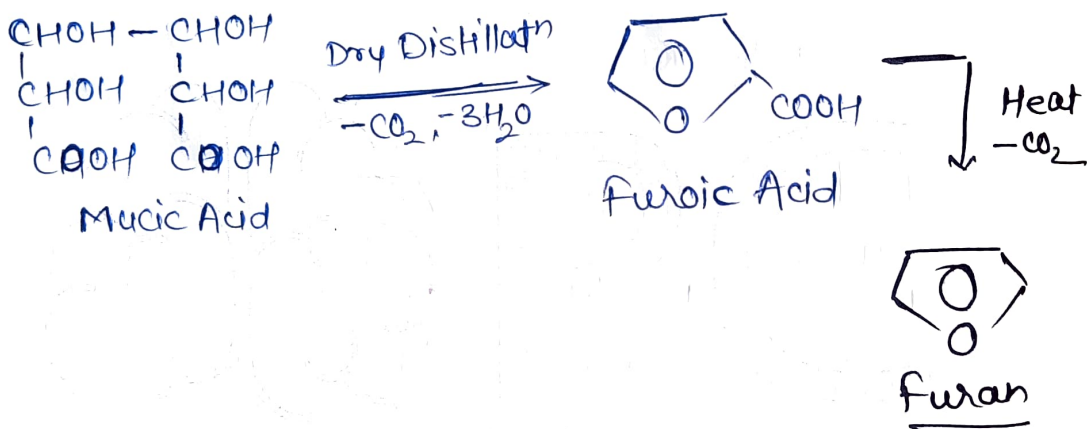 CHOH – CHOH
CHOH CHOH
COOH COOH
Mucic Acid
Dry Distillatn
-CO2, -3H2O
O
COOH
Furoic Acid
Heat
-CO2
O
Furan